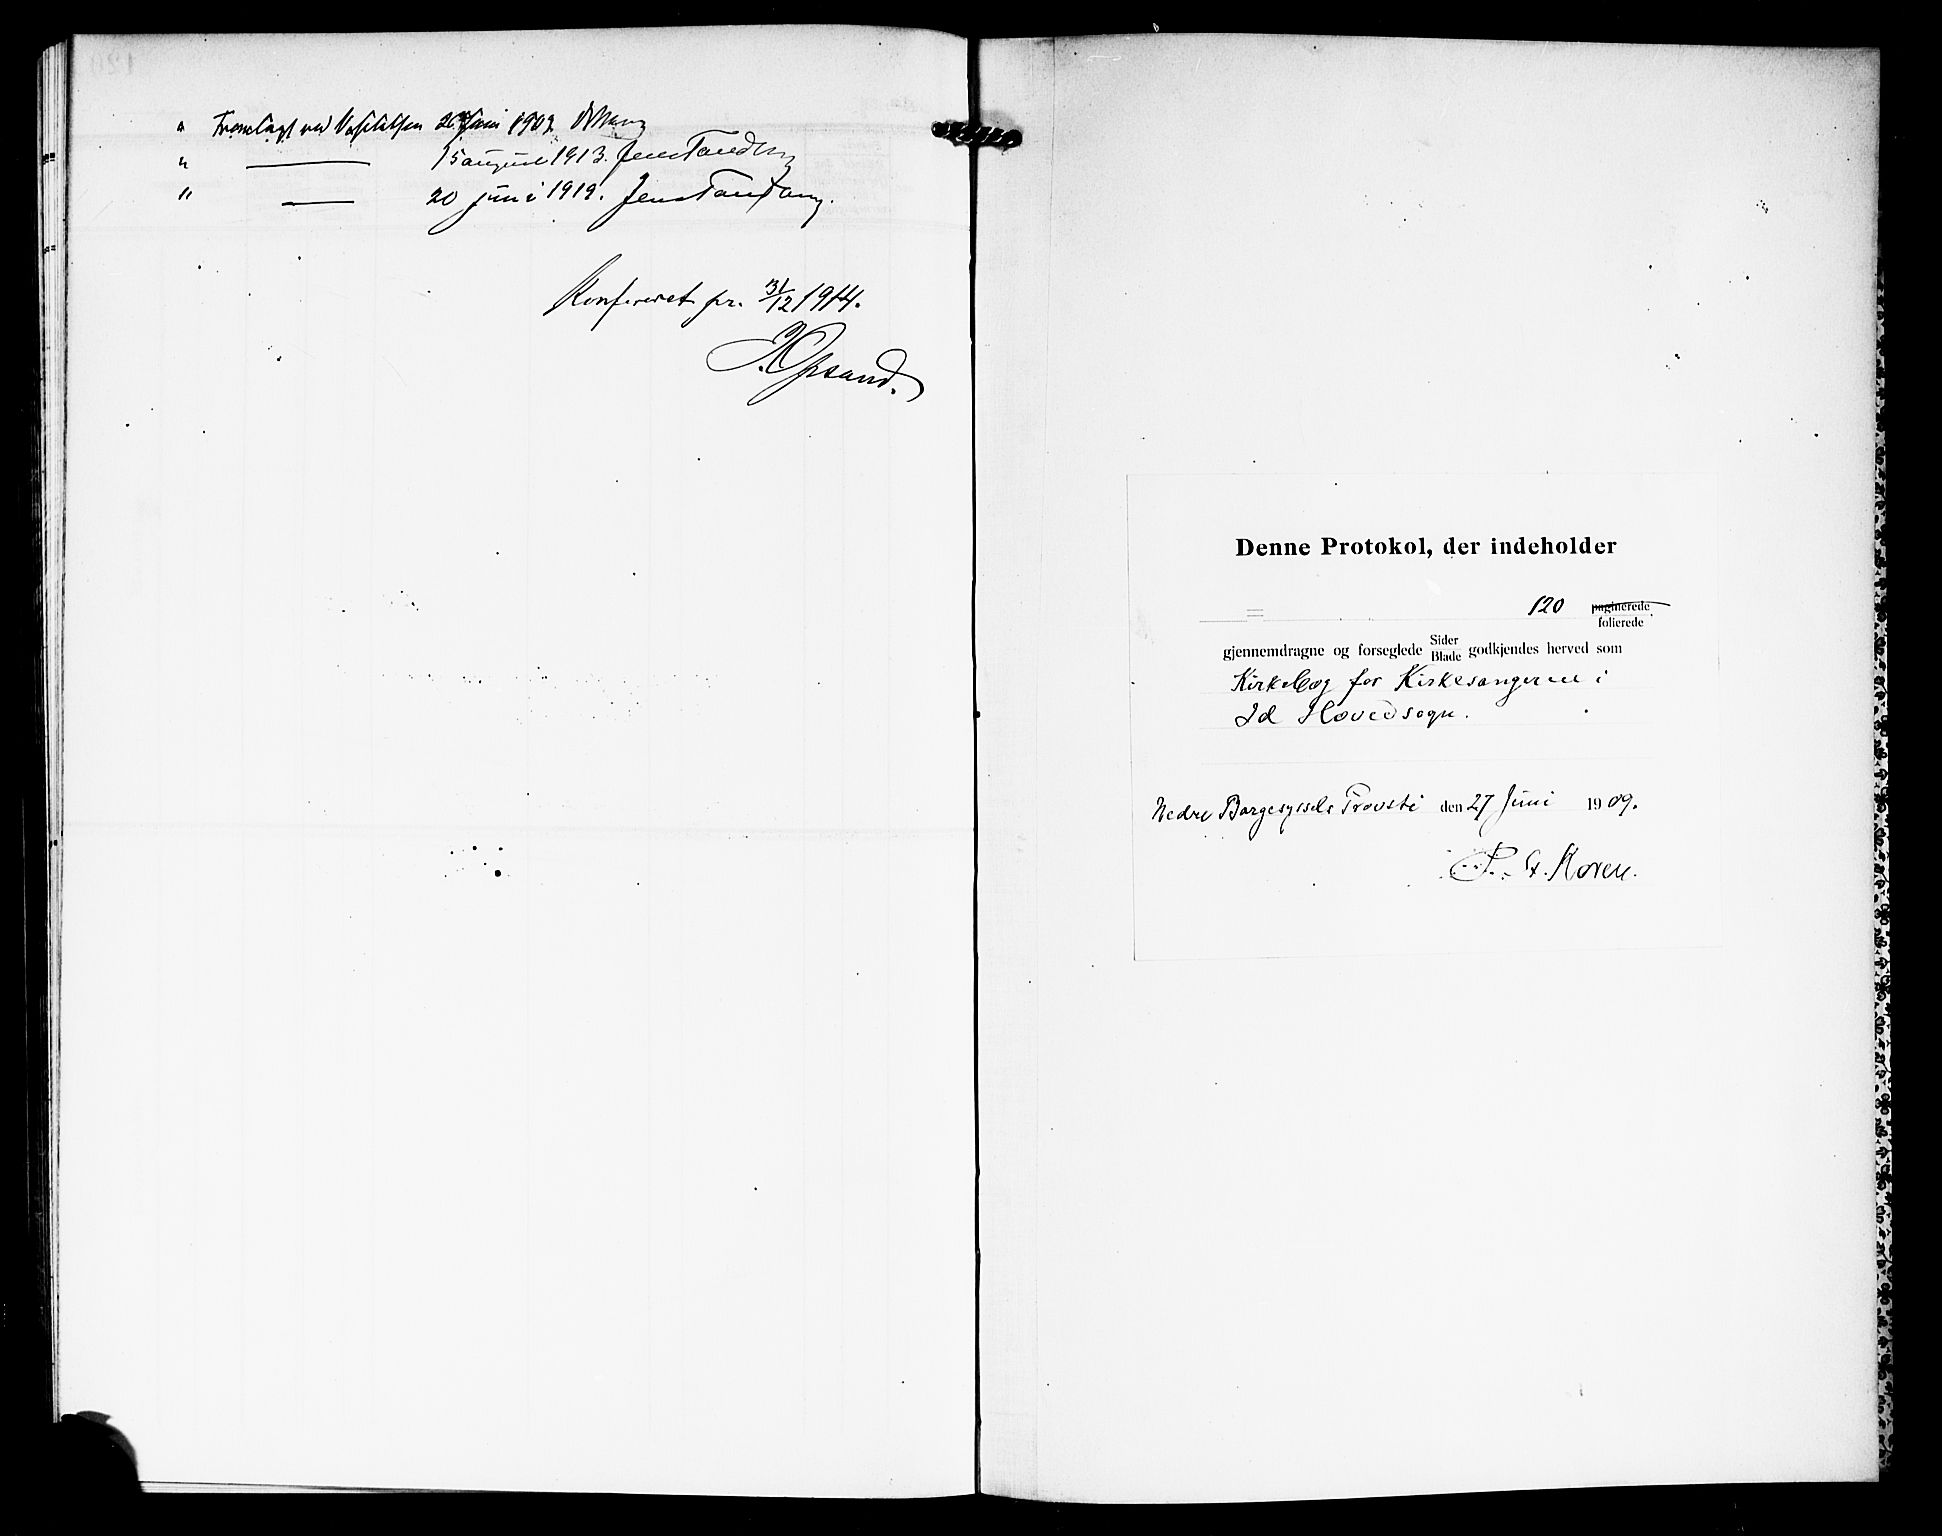 " Fremlagt ved Visitatsen 26 Juni 1909
" —— 15 august 1913. Jens Tandberg
" —— 20 juni 1919. Jens Tandberg.
Konfereret pr. 31/12 1914.
Opsand.
Denne Protokol, der indeholder
= 120 paginerede
folierede
gjennemdragne og forseglede Sider
Blade godkjendes herved som
Kirkebog for Kirkesangeren i
Id Hovedsogn.
Nedre Borgesyssels Provsti den 27 Juni 1909.
Koren.